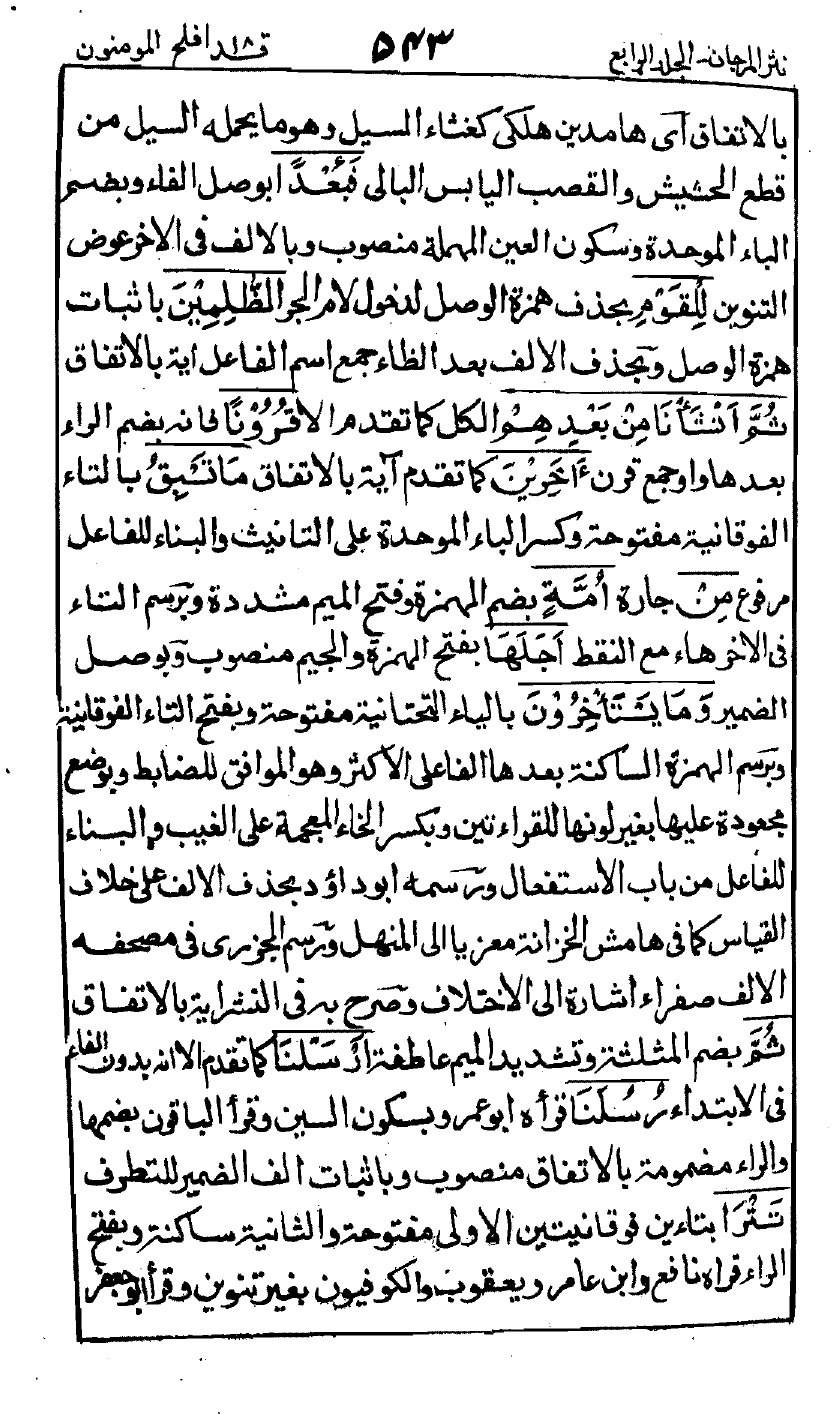 نثر المرجان۔ الجلد الرابع ۵۴۳ قد افلح ۱۸ المومنون
بالاتفاق آى هامدين هلكى كغثاء السيل وهو ما يحمله السيل من
قطع الحشيش والقصب اليابس البالى فَبُعْدًا بوصل الفاء وبضم
الباء الموحدة وسكون العين المهملة منصوب وبالالف فى الاخر عوض
التنوين لِّلْقَوْمِ بحذف همزة الوصل لدخول لام الجر الظّٰلِمِيْنَ باثبات
همزة الوصل وبحذف الالف بعد الظاء جمع اسم الفاعل اية بالاتفاق
ثُمَّ اَنْشَأْنَا مِنْ بَعْدِ هِمْ الكل كما تقدم الا قُرُوْنًا فانه بضم الراء
بعدها واو جمع قرن ءَاخَرِيْنَ كما تقدم آية بالاتفاق مَا تَسْبِقُ بالتاء
الفوقانية مفتوحة وكسر الباء الموحدة على التانيث والبناء للفاعل
مرفوع مِنْ جارة اُمَّةٍ بضم الهمزة وفتح الميم مشددة وبرسم التاء
فى الاخر هاء مع النقط اَجَلَهَا بفتح الهمزة والجيم منصوب وبوصل
الضمير وَمَا يَسْتَأْخِرُوْنَ بالياء التحتانية مفتوحة وبفتح التاء الفوقانية
وبرسم الهمزة الساكنة بعدها الفا على الأكثر وهو الموافق للضابط وبوضع
مجعودة عليها بغير لونها للقراءتين وبكسر الخاء المعجمة على الغيب والبناء
للفاعل من باب الاستفعال ورسمه ابو داؤد بحذف الالف على خلاف
القياس كما فى هامش الخزانة معزيا الى المنهل ورسم الجزرى فى مصحفه
الالف صفراء اشارة الى الاختلاف وصرح به فى النشر اية بالاتفاق
ثُمَّ بضم المثلثة وتشديد الميم عاطفة اَرْسَلْنَا كما تقدم الا انه بدون الفاء
فى الابتداء رُسُلَنَا قرأه ابو عمرو بسكون السين وقرأ الباقون بضمها
والراء مضمومة بالاتفاق منصوب وباثبات الف الضمير للتطرف
تَتْرَا بتاءين فوقانيتين الاولى مفتوحة والثانية ساكنة وبفتح
الراء قراه نافع وابن عامر ويعقوب والكوفيون بغير تنوين وقرأ ابو جعفر